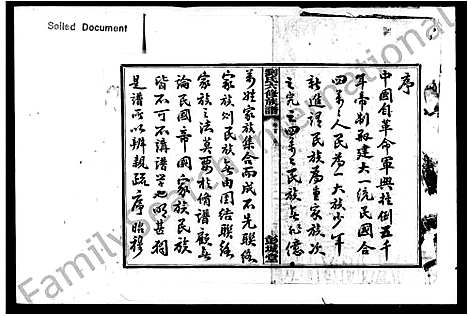 Soiled Document
FamilySearch International
序
中國自革命軍興推倒五千
年帝制而建大一統民國合
四萬萬人民為一大族少年
新進謂民族為重家族次
之究之四萬萬民族無非億
劉氏六修族譜
彭城堂
萬姓家族集合而成不先聯絡
家族則民族無由團結聯絡
家族之法莫要於修譜顧無
論民國帝國家族民族
皆不可不講譜學也明甚詞
是譜所以辨親疏序昭穆